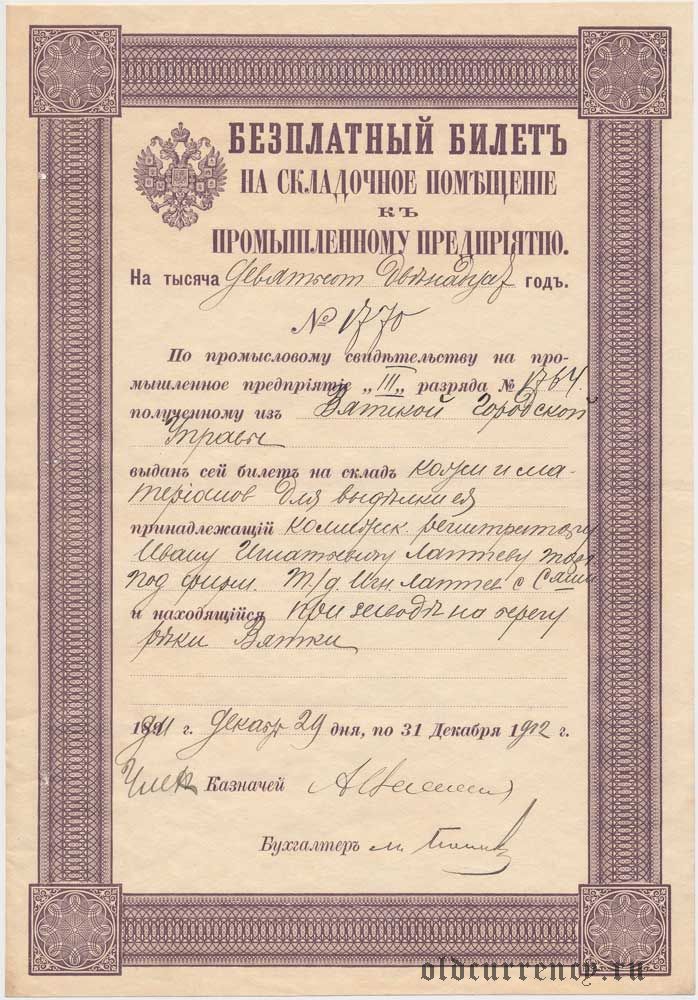 БЕЗПЛАТНЫЙ БИЛЕТЪ
НА СКЛАДОЧНОЕ ПОМѢЩЕНІЕ
КЪ
ПРОМЫШЛЕННОМУ ПРЕДПРІЯТІЮ.
На тысяча девятьсот двѣнадцат годъ.
№ 1770
По промысловому свидѣтельству на про-
мышленное предпріятіе „III„ разряда № 1764
полученному изъ Вятской Городской
Управы
выданъ сей билетъ на складъ кожи и ма-
теріалов для выдѣлки ея
принадлежащій коллежск. регистратору
Ивану Игнатьевичу Лаптеву торг
под фирм. Т/д. Игн. Лаптев с С-ми
и находящійся при заводѣ на берегу
рѣки Вятки
1911 г. Декабр 29 дня, по 31 Декабря 1912 г.
Член Казначей
Бухгалтеръ
oldcurrency.ru